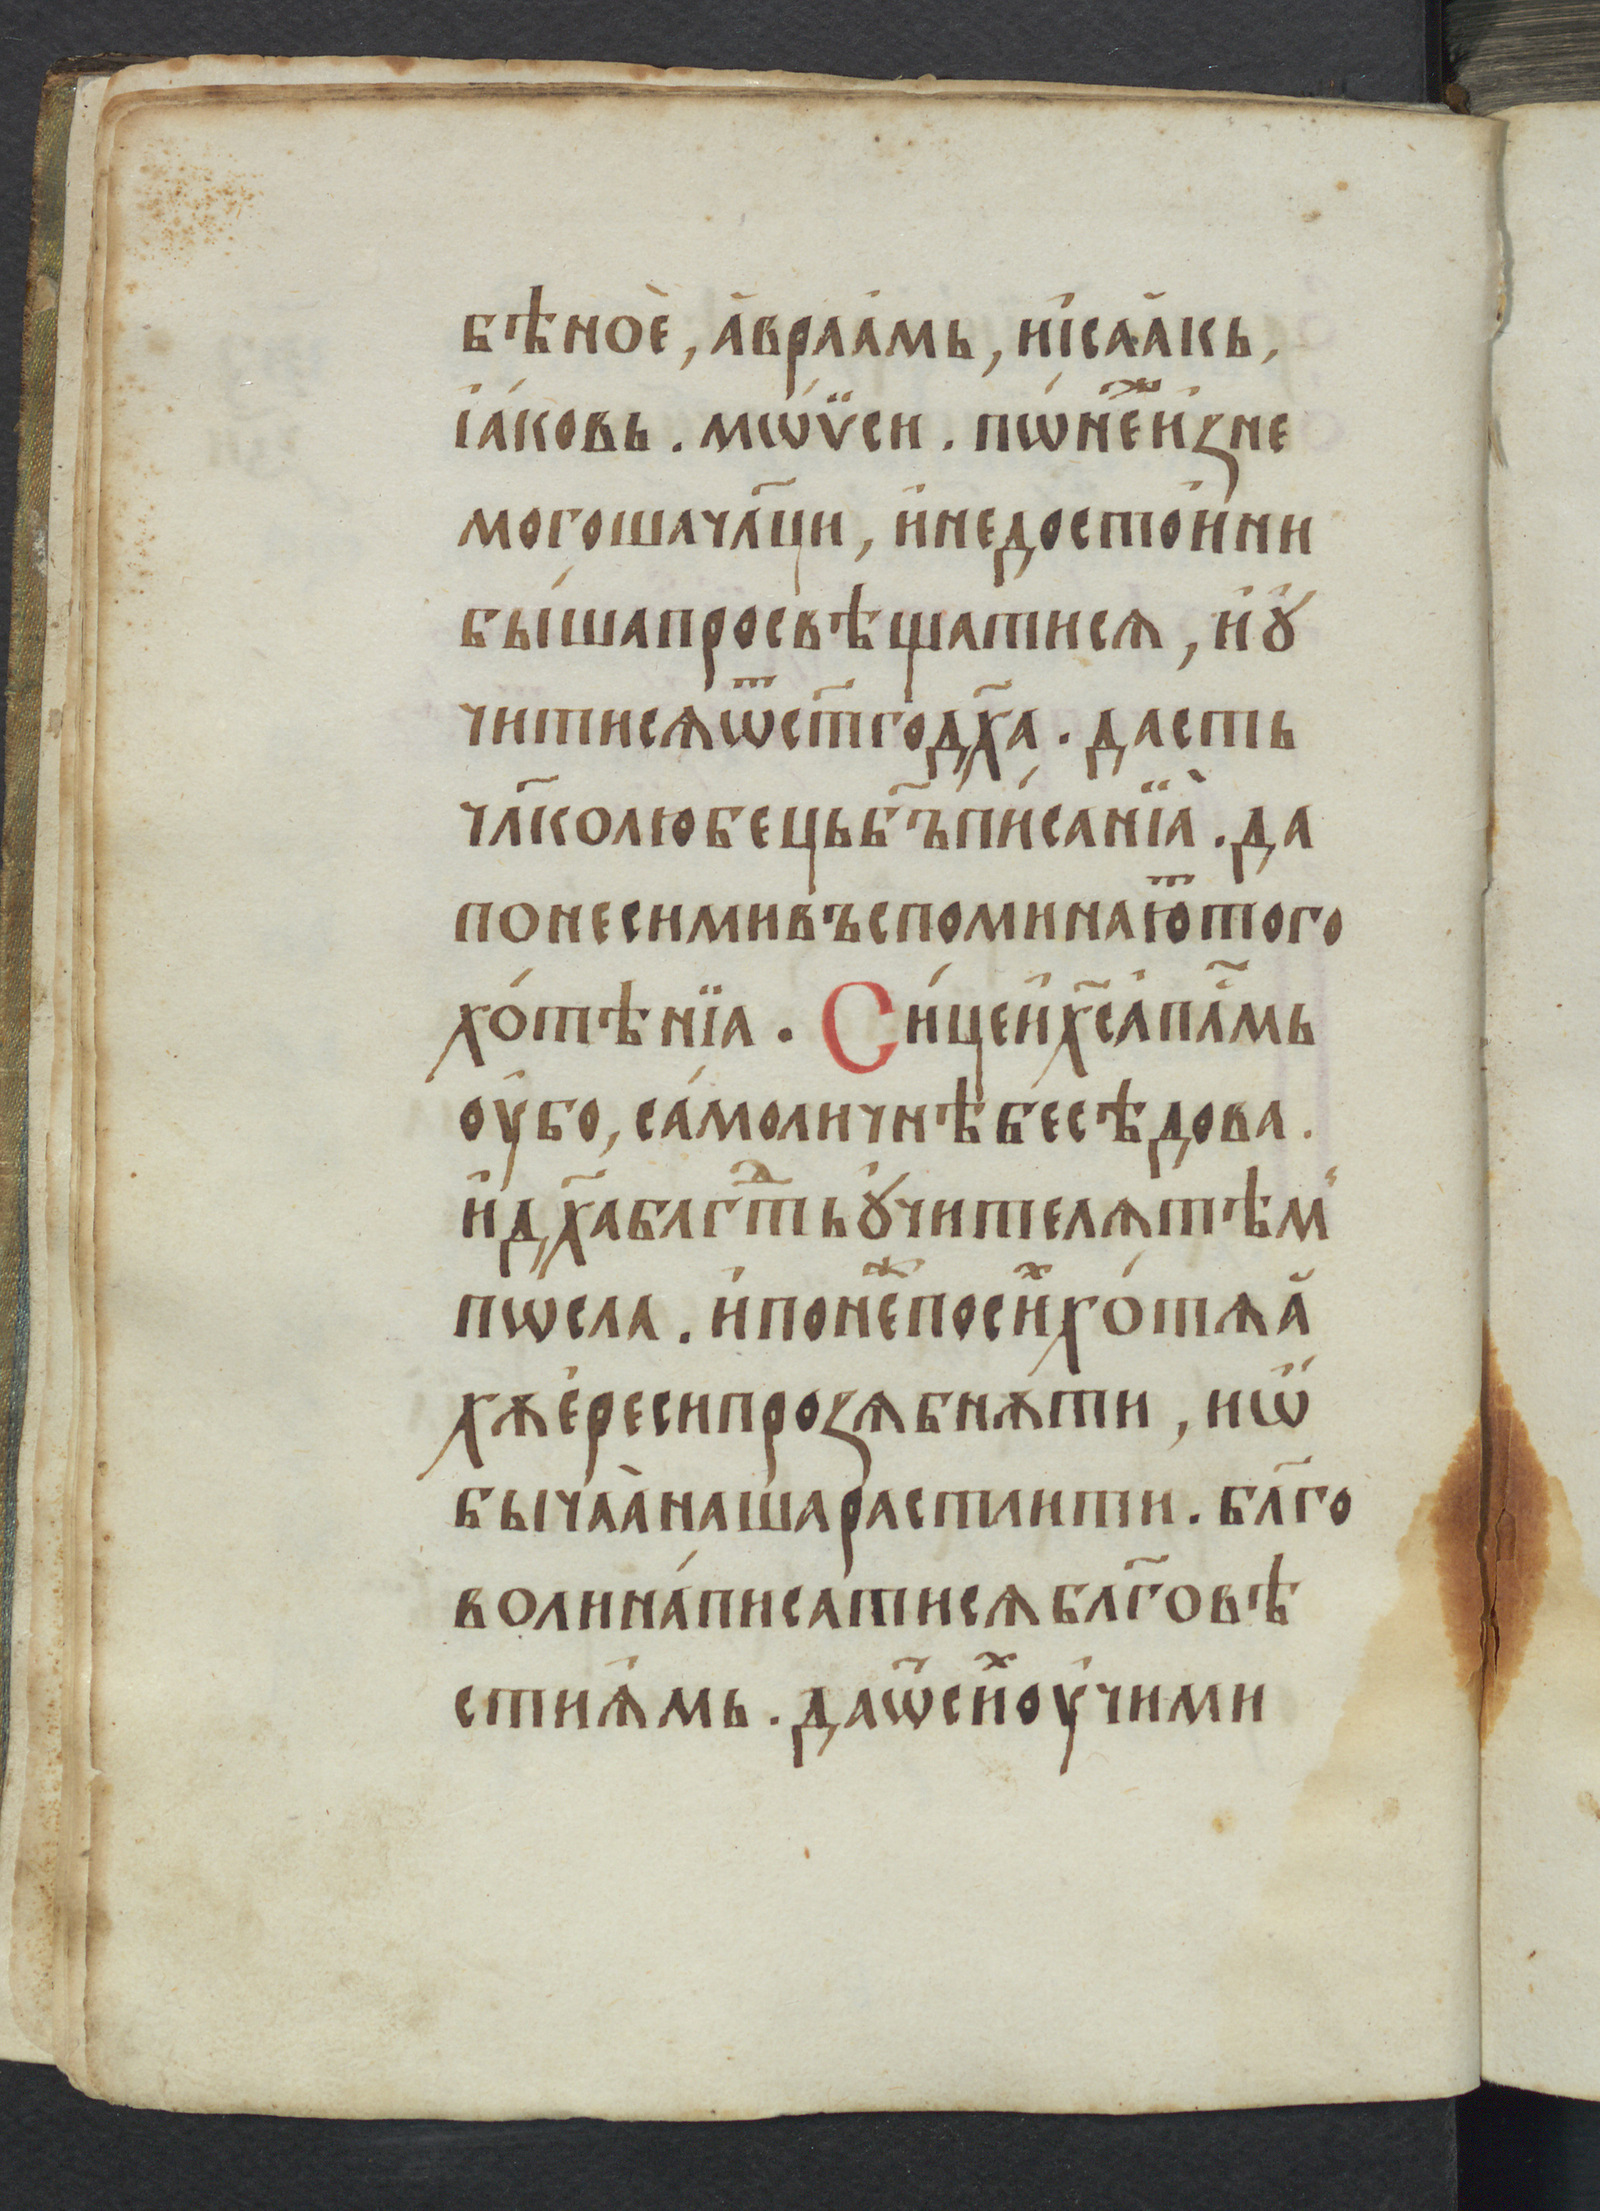 бѣ ноѐ, а҆враа́мь, и҆ і҆саа҆кь,
і҆а́ковь. мѡѷ́си. пѡ́неⷤ҇ и҆зне
могоша чл҃ци, и҆ недосто́ини
бы́ша просвѣщатисѧ, и҆ ꙋ҆
читисѧ ѿ ст҃го дх҃а. дасть
чл҃колюбець б҃ъ пи́санїа̀. да
поне сими въспоминаюⷮ҇ того
хо́тѣнїа. Си́це и҆ х҃с а҆пл҃мь
оу҆бо, са́моличнѣ бесѣдова.
и҆ дх҃а блгⷣ҇ть ꙋ҆чителѧ тѣм
пѡ́сла. и҆ понеⷤ҇ по сиⷯ҇ хо́тѧа҆
хѫ е҆реси прозѧбнѫти, и ѡ҆
бычаа̀ наша растлити. бл҃го
воли на́писатисѧ бл҃говѣ
стиѧ҆мь. да ѿ сиⷯ҇ оу҆чими